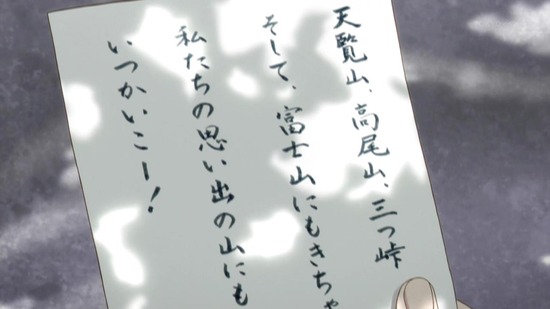 天覧山、高尾山、三つ峠
そして、富士山にもきちゃ
私たちの思い出の山にも
いつかいこー！